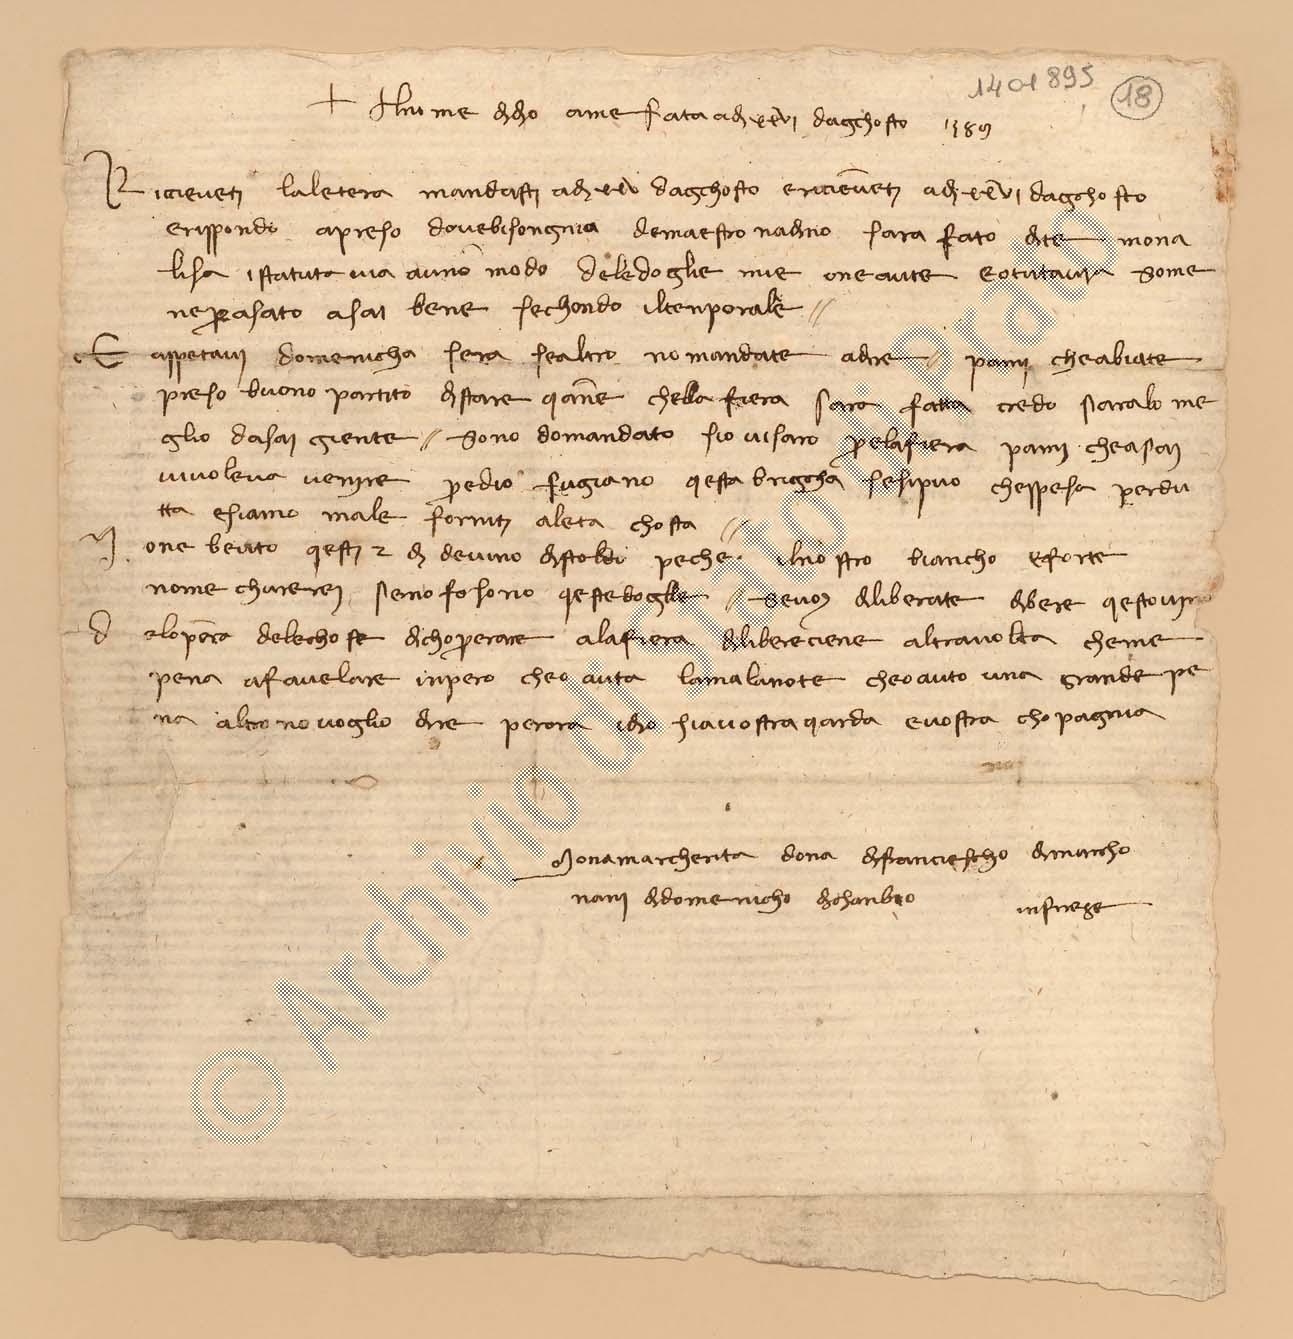 1401895 18
+ Al nome di dio ame fata adi xxvi daghosto 1389
Ricieveti laletera mandasti adi xxv daghosto ericieveti adi xxvi daghosto
erispondo apreso dovebisongnia demaestro nadino sara fato dite mona
lisa istatuta una auno modo dele doglie mie one aute eotutavia some
ne pasato asai bene sechondo iltenporale //
E aspetavi domenicha sera sealtro nomandate adire // parmi cheabiate
preso buono partito distare qane chella fiera sara fatta credo saralo me
glio dasai giente // sono domandato sio visaro per lafiera parmi cheasai
vivoleva venire perdio fugiano qesta brigha sesipuo chesspesa perdu
tta esiamo male forniti aleta chosta //
M one bevto qesti 2 di devino distoldo peche ilnostro biancho eforte
nome churerei senofosono qestedoglle // sevoi diliberate dibere qestovino
d elopera delechose dichoperare alafiera dilibereciene altravolta cheme
pena afavelare inpero cheo auta lamalanote cheoauto una grande pe
na altro novoglio dire perora idio siavostraqarda evostra chopagnia
Monamarcherita dona difranciescho dimarcho
nani didomenicho dichanbio infirege
© Archivio di Stato di Prato